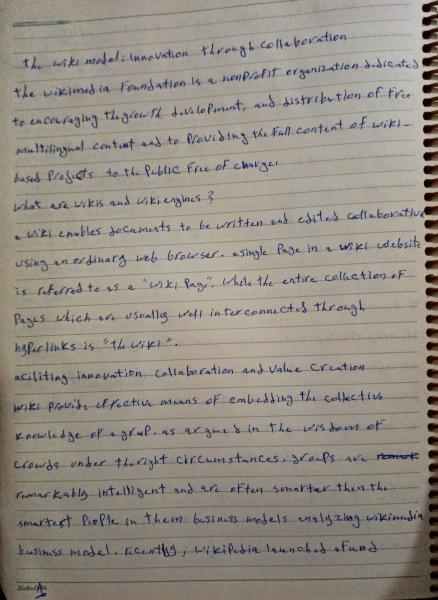 the wiki model: Innovation through collaboration
the wikimedia Foundation Is a nonprofit organization dedicated
to encouraging the growth, development, and distribution of Free
multilingual content and to Providing the Full content of wiki-
based Projects to the Public Free of charge.
What are wikis and wiki engines?
a wiki enables documents to be written and edited collaborative
using an ordinary web browser. a single Page in a wiki website
is referred to as a "wiki Page". While the entire collection of
Pages which are usually well interconnected through
hyperlinks is "the wiki".
aciliting innovation collaboration and value Creation
wiki provide effective means of embedding the collective
knowledge of a group. as argues in the wisdom of
crowds under the right circumstances, groups are remark
remarkably intelligent and are often smarter then the
smartest People in them business models analyzing wikimedia
business model. recently, wikipedia launched a Fund